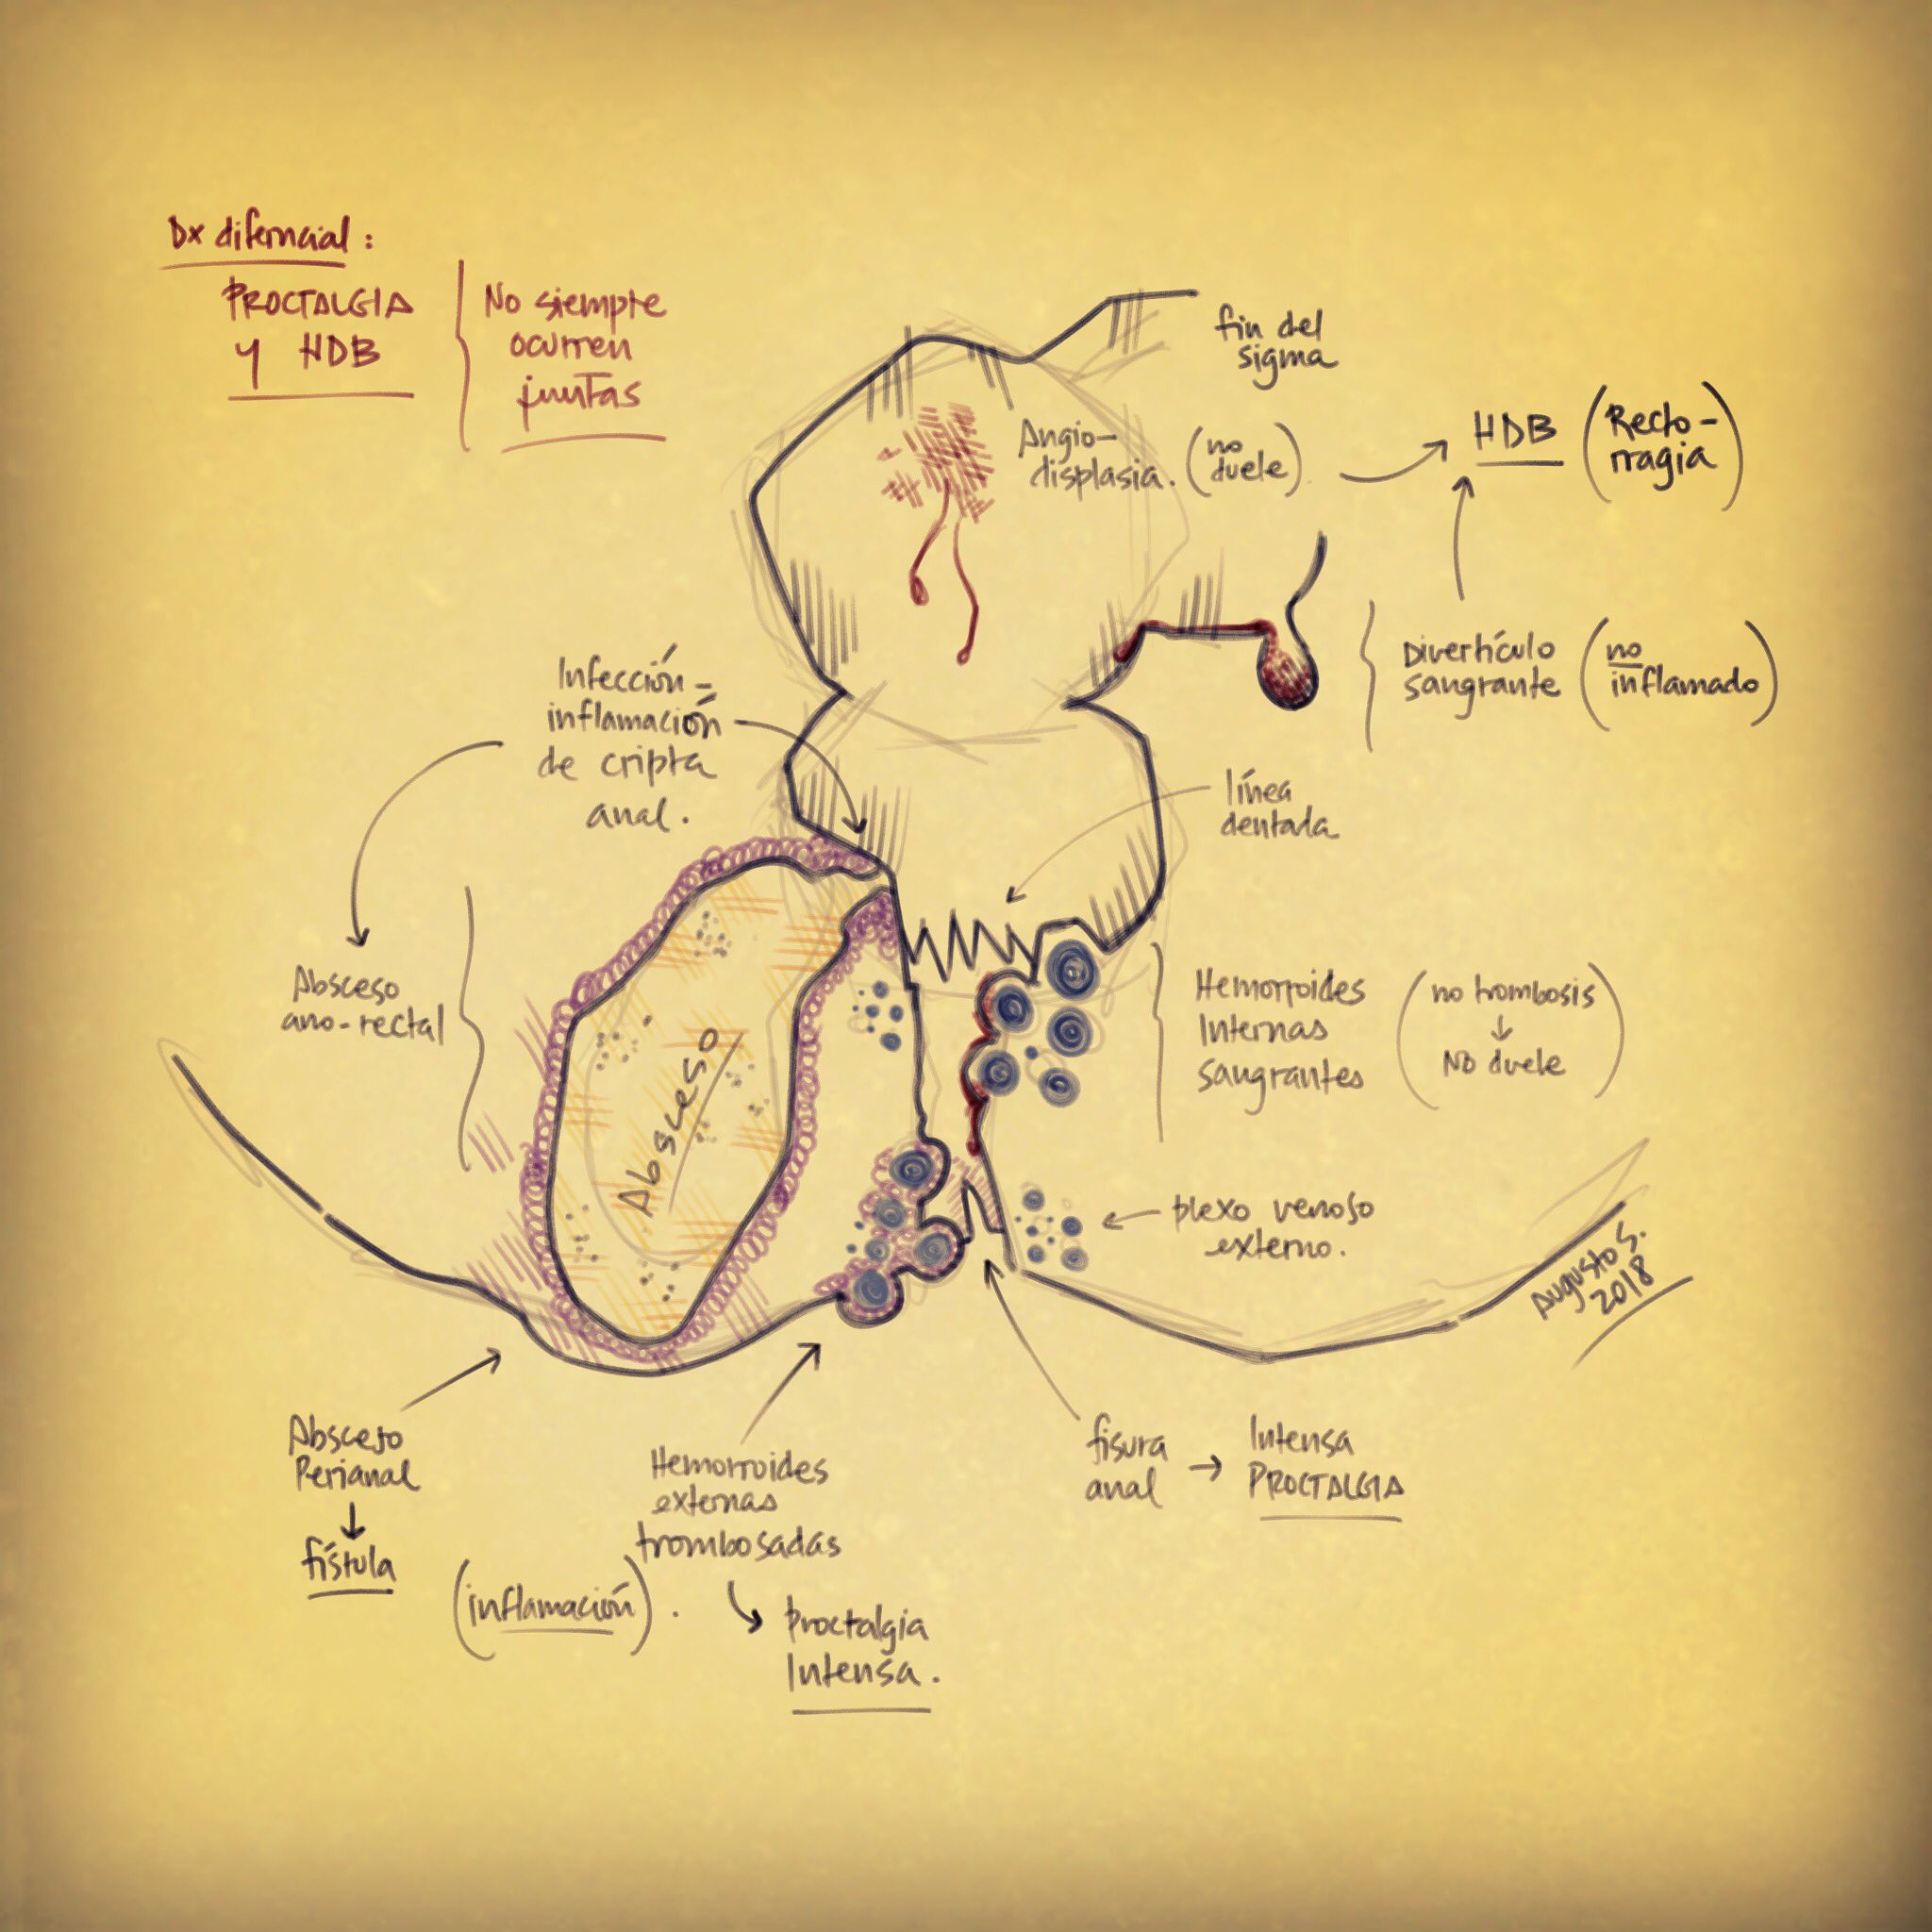 Dx diferncial:
PROCTALGIA
y HDB
No siempre
ocurren
juntas
fin del
sigma
Angio-
displasia. (no duele)
HDB (Recto-
rragia)
Divertículo
sangrante (no inflamado)
Infección-
inflamación
de cripta
anal.
línea
dentada
Absceso
ano-rectal
Absceso
Hemorroides
Internas
sangrantes
(no trombosis
↓
No duele)
← plexo venoso
externo.
Augusto S.
2018
Absceso
Perianal
↓
fístula
Hemorroides
externas
trombosadas
(inflamación).
Proctalgia
Intensa.
fisura
anal →
Intensa
PROCTALGIA